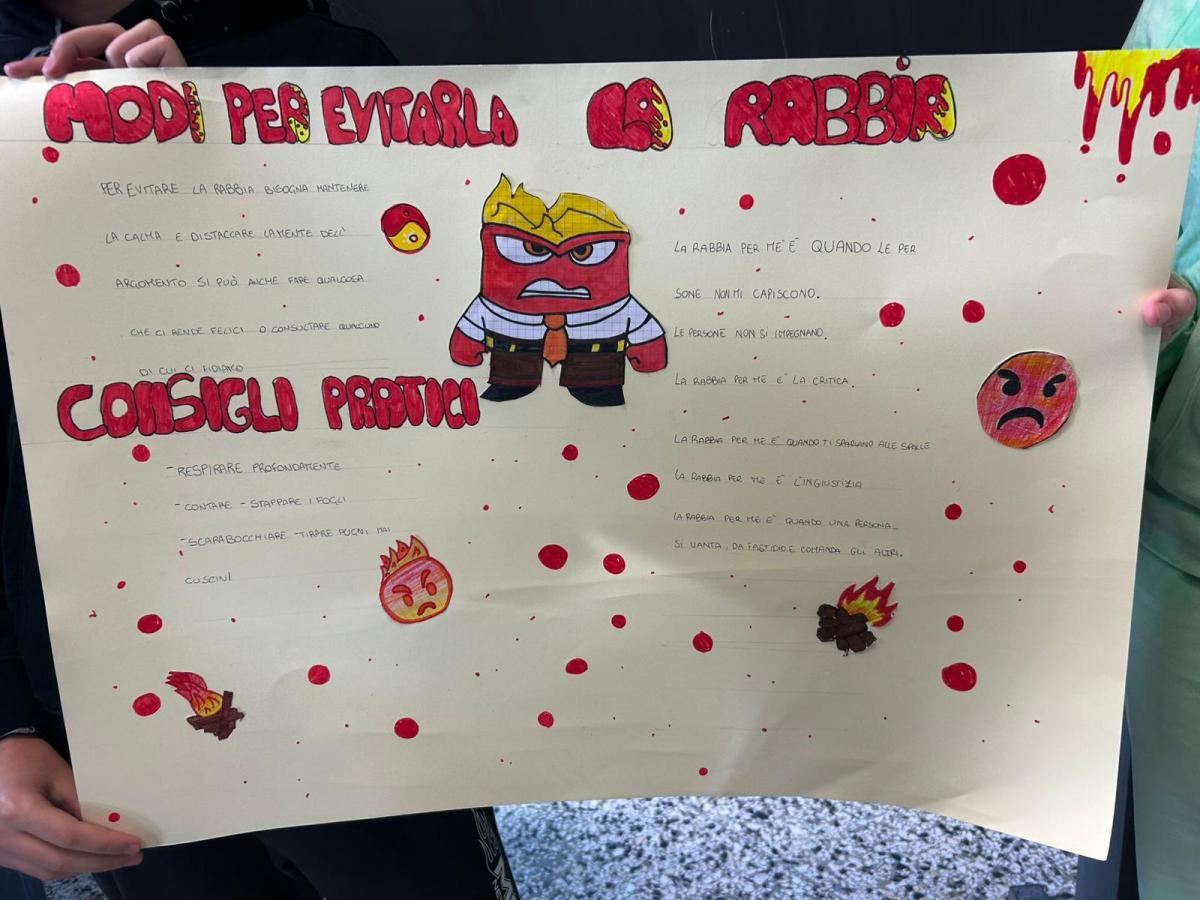 MODI PER EVITARLA
PER EVITARE LA RABBIA BISOGNA MANTENERE
LA CALMA E DISTACCARE LA MENTE DELL'
ARGOMENTO SI PUÒ ANCHE FARE QUALCOSA
CHE CI RENDE FELICI O CONSULTARE QUALCUNO
DI CUI CI FIDIAMO
CONSIGLI PRATICI
-RESPIRARE PROFONDAMENTE
-CONTARE - STAPPARE I FOGLI
-SCARABOCCHIARE -TIRARE PUGNI
CUSCINI
LA RABBIA
LA RABBIA PER ME È QUANDO LE PER
SONE NON MI CAPISCONO.
LE PERSONE NON SI IMPEGNANO.
LA RABBIA PER ME È LA CRITICA.
LA RABBIA PER ME È QUANDO TI SPARLANO ALLE SPALLE
LA RABBIA PER ME È L'INGIUSTIZIA
LA RABBIA PER ME È QUANDO UNA PERSONA
SI VANTA, DA FASTIDIO E COMANDA GLI ALTRI.